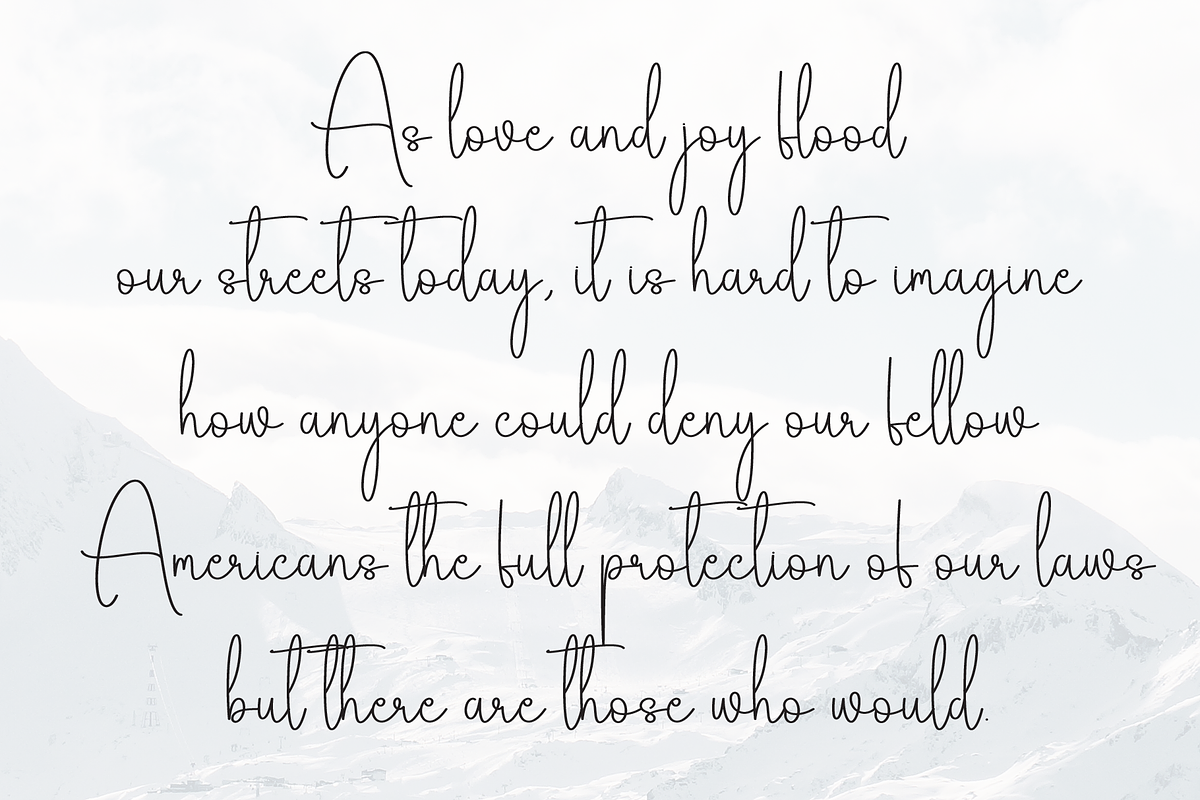 As love and joy flood
our streets today, it is hard to imagine
how anyone could deny our fellow
Americans the full protection of our laws
but there are those who would.